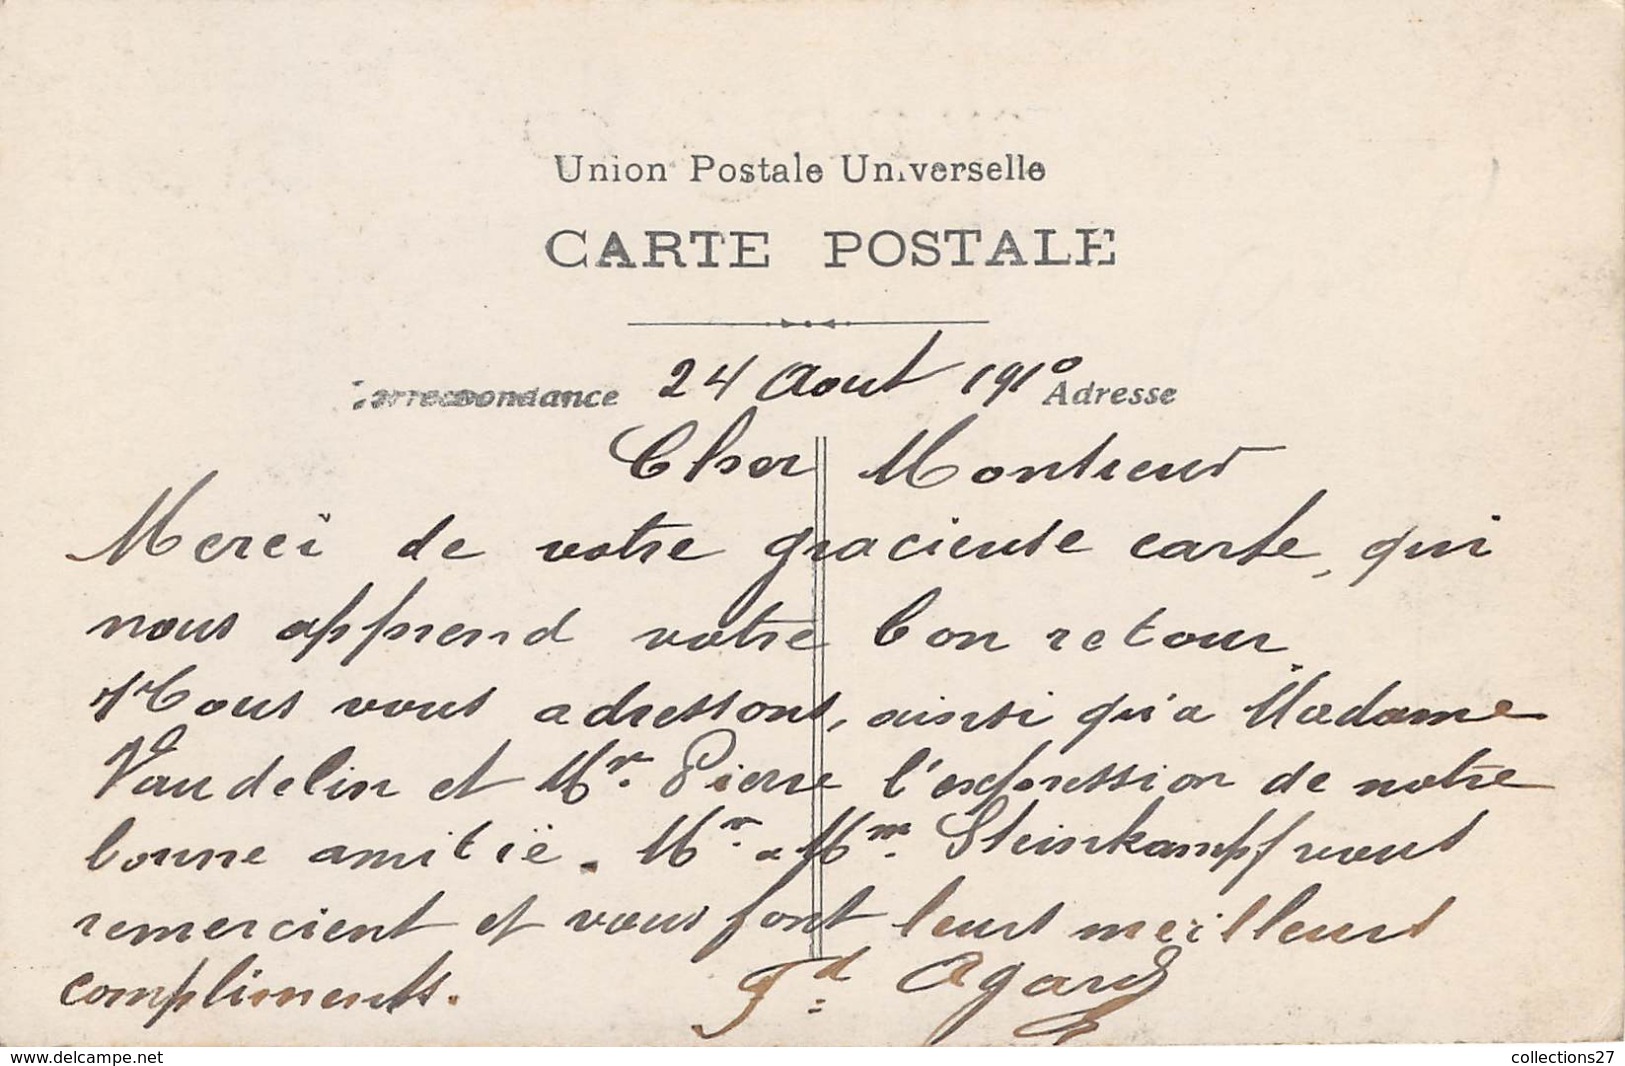 Union Postale Universelle
CARTE POSTALE
Correspondance 24 Aout 1910 Adresse
Cher Monsieur
Merci de votre gracieuse carte, qui
nous apprend votre bon retour.
Nous vous adressons, ainsi qu'a Madame
Vaudelin et Mr. Pierre l'expression de notre
bonne amitië. Mr. & Mm. Steinkampf vous
remercient et vous font leurs meilleurs
compliments. Fd Agard
www.delcampe.net collections27